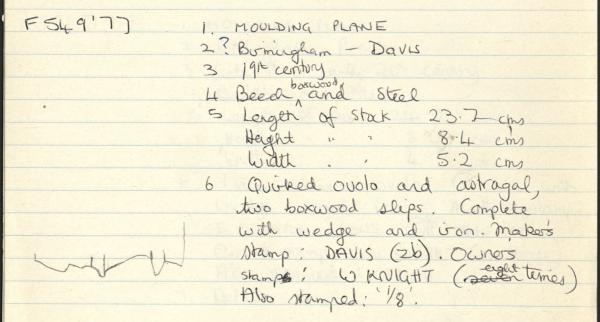 F549'77
1. MOULDING PLANE
2 ? Birmingham – DAVIS
3 19th century
4 Beech boxwood and steel
5 Length of stock 23.7 cms
Height " " 8.4 cms
Width " " 5.2 cms
6 Quirked ovolo and astragal,
two boxwood slips. Complete
with wedge and iron. Makers
stamp: DAVIS (2b). Owners
stamp: W KNIGHT (seven eight times)
Also stamped: '1/8'.